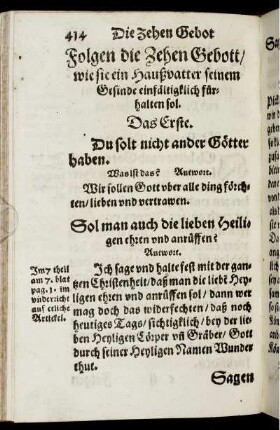 414 Die Zehen Gebot
Folgen die Zehen Gebott/
wie sie ein Haußvatter seinem
Gesinde einfältigklich für-
halten sol.
Das Erste.
Du solt nicht ander Götter
haben.
Was ist das? Antwort.
Wir sollen Gott vber alle ding förch-
ten/ lieben vnd vertrawen.
Sol man auch die lieben Heili-
gen ehren vnd anrüffen?
Antwort.
Ich sage vnd halte fest mit der gan-
tzen Christenheit/ daß man die liebē Hey-
ligen ehren vnd anrüffen sol/ dann wer
mag doch das widerfechten/ daß noch
heutiges Tags/ sichtigklich/ bey der lie-
ben Heyligen Cörper vñ Gräber/ Gott
durch seiner Heyligen Namen Wunder
thut.
Im 7 theil
am 7. blat
pag. 1. im
vnderricht
auf etliche
Artickel.
Sagen